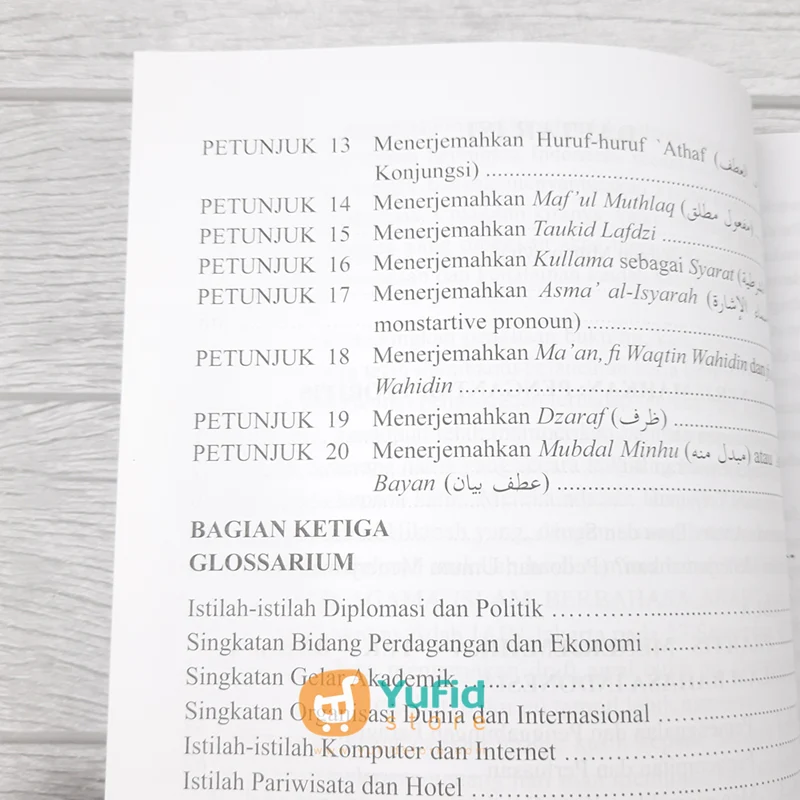 PETUNJUK 13 Menerjemahkan Huruf-huruf `Athaf (عطف
Konjungsi) ........................
PETUNJUK 14 Menerjemahkan Maf'ul Muthlaq (مفعول مطلق)
PETUNJUK 15 Menerjemahkan Taukid Lafdzi ........................
PETUNJUK 16 Menerjemahkan Kullama sebagai Syarat (شرطية
PETUNJUK 17 Menerjemahkan Asma' al-Isyarah (الإشارة
monstartive pronoun) ........................
PETUNJUK 18 Menerjemahkan Ma'an, fi Waqtin Wahidin dan
Wahidin ........................
PETUNJUK 19 Menerjemahkan Dzaraf (ظرف) ........................
PETUNJUK 20 Menerjemahkan Mubdal Minhu (مبدل منه) atau
Bayan (عطف بيان) ........................
BAGIAN KETIGA
GLOSSARIUM
Istilah-istilah Diplomasi dan Politik ........................
Singkatan Bidang Perdagangan dan Ekonomi ........................
Singkatan Gelar Akademik ........................
Yufid
store
Singkatan Organisasi Dunia dan Internasional ........................
Istilah-istilah Komputer dan Internet ........................
Istilah Pariwisata dan Hotel ........................